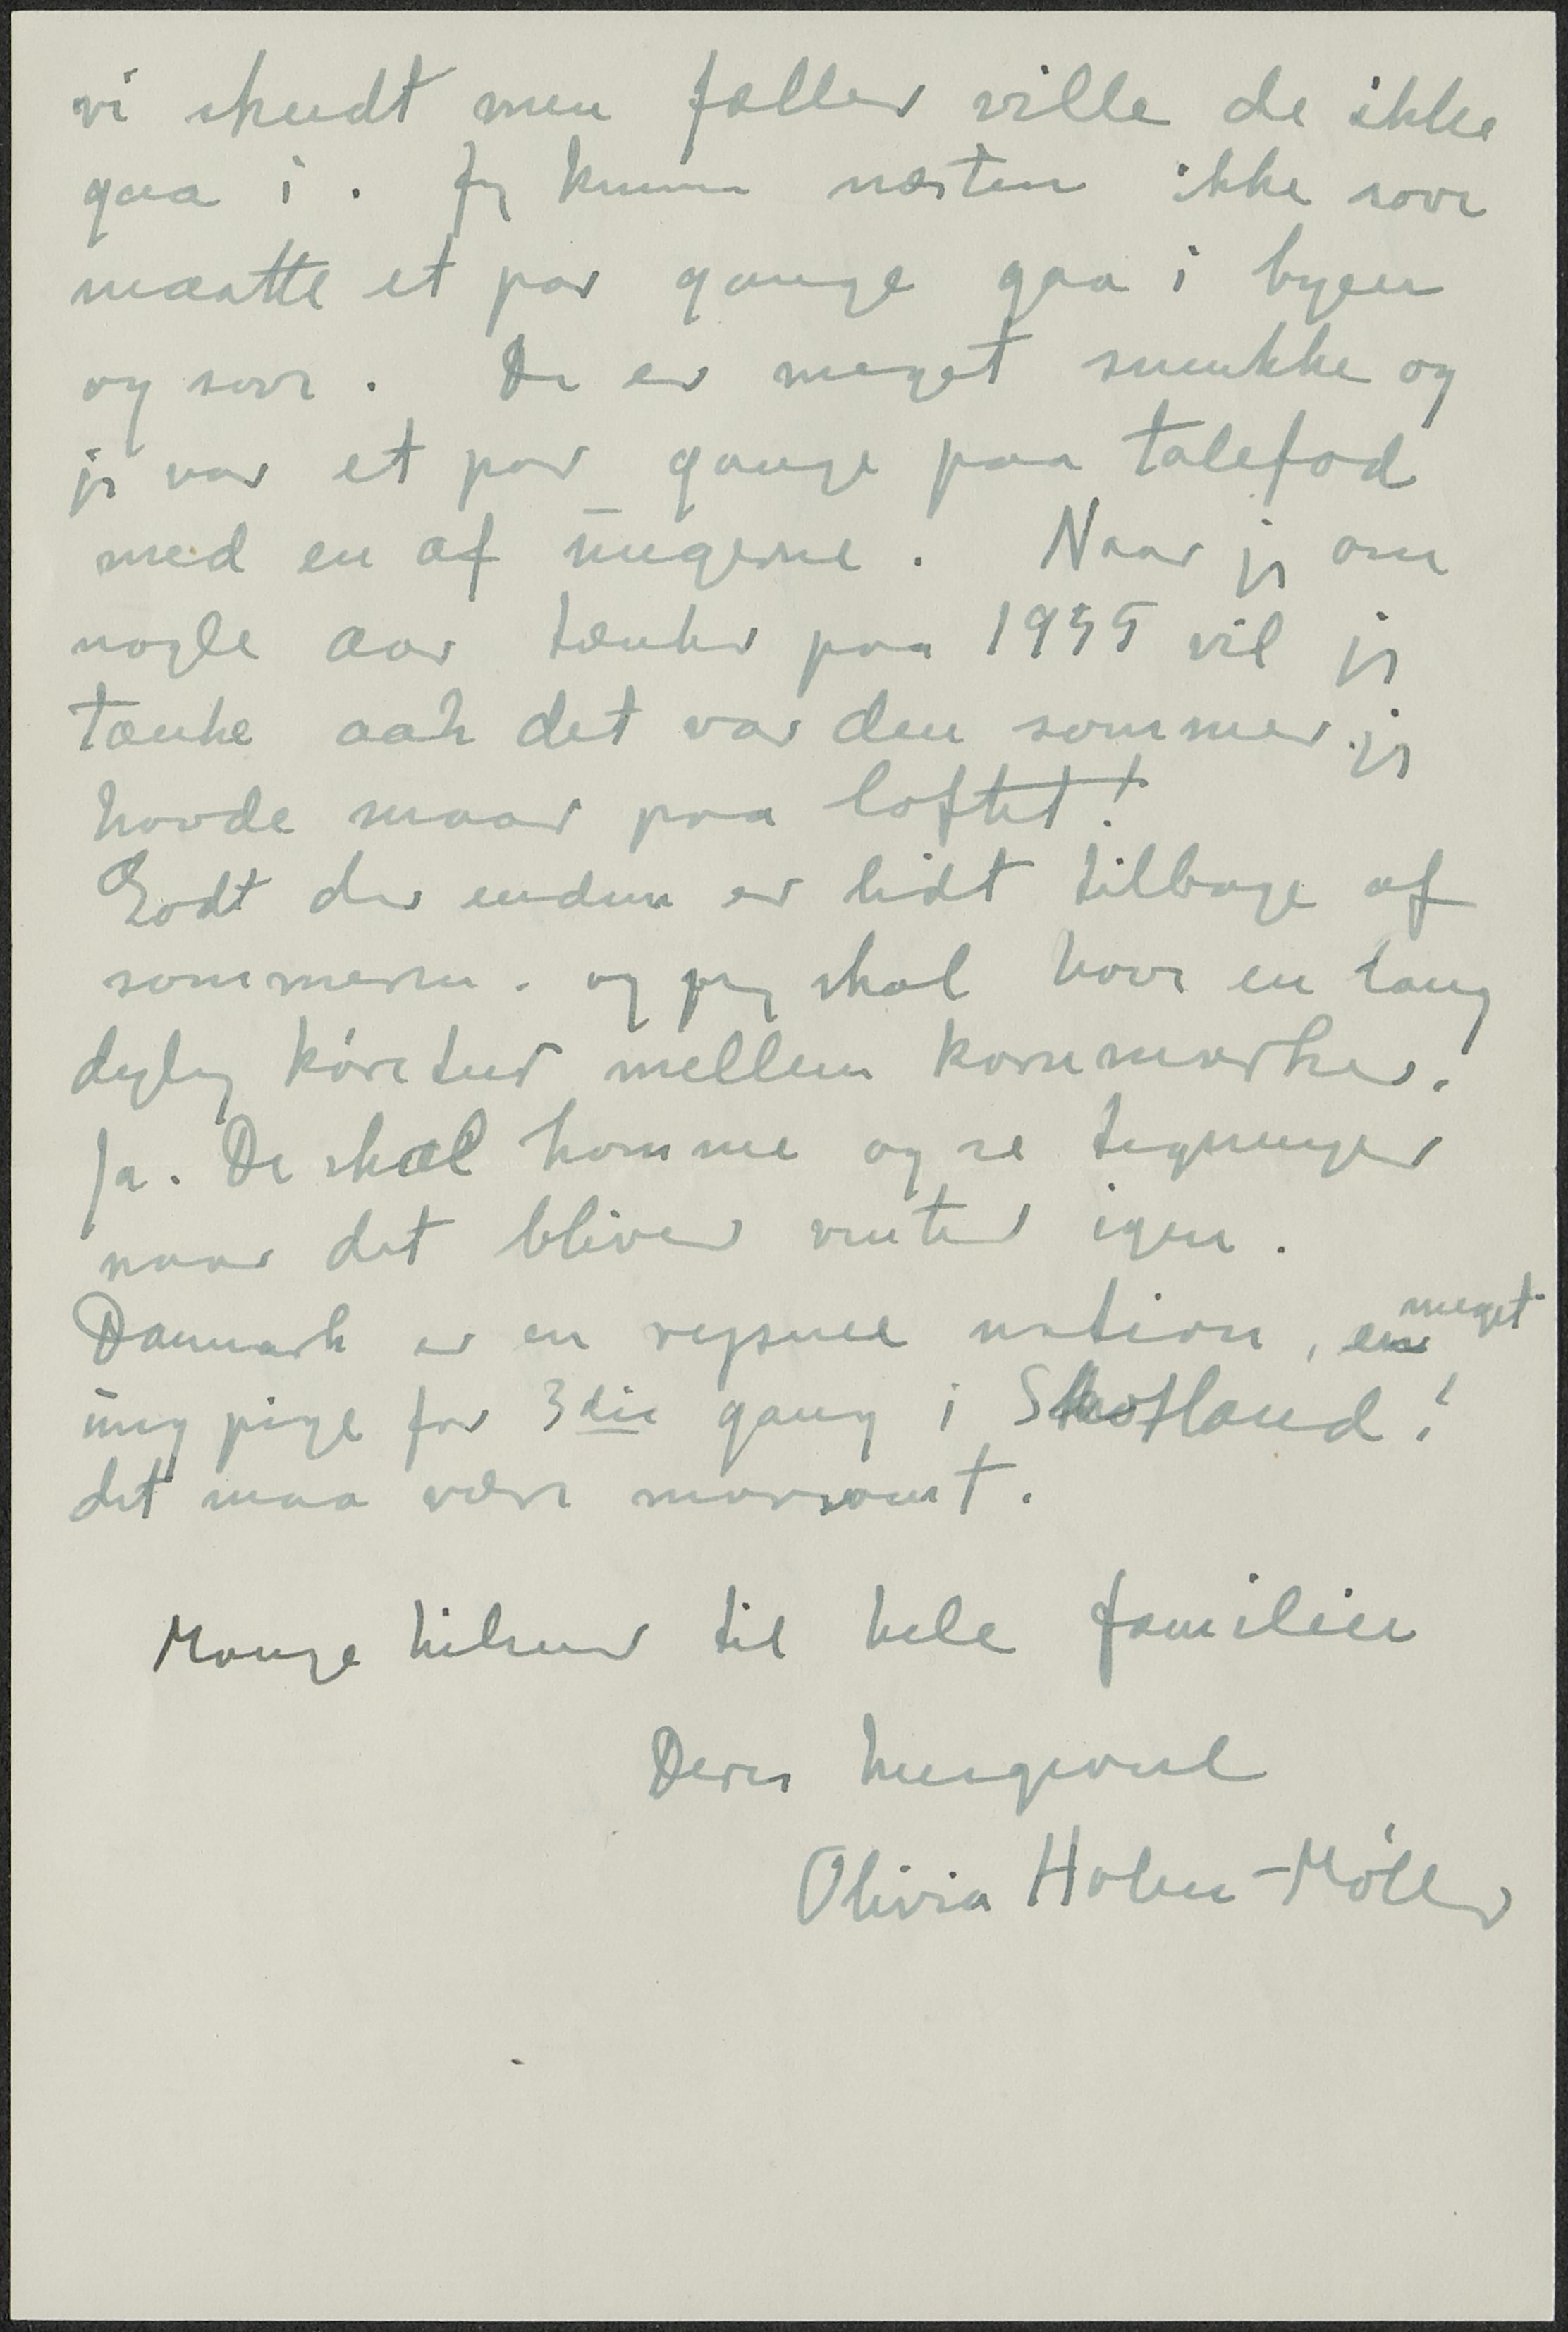 vi skudt men fælder ville de ikke
gaa i. Jeg kunne næsten ikke sove
maatte et par gange gaa i byen
og sove. De er meget smukke og
jeg var et par gange paa talefod
med en af ungerne. Naar jeg om
nogle aar tænker paa 1955 vil jeg
tænke aah det var den sommer jeg
havde maar paa loftet!
Godt der endnu er lidt tilbage af
sommeren. og jeg skal have en lang
dejlig køretur mellem kornmarker.
Ja. De skal komme og se tegninger
naar det bliver vinter igen.
Danmark er en rejsende nation, en meget
ung pige for 3die gang i Skotland!
det maa være morsomt.
Mange hilsner til hele familien
Deres hengivne
Olivia Holm-Møller